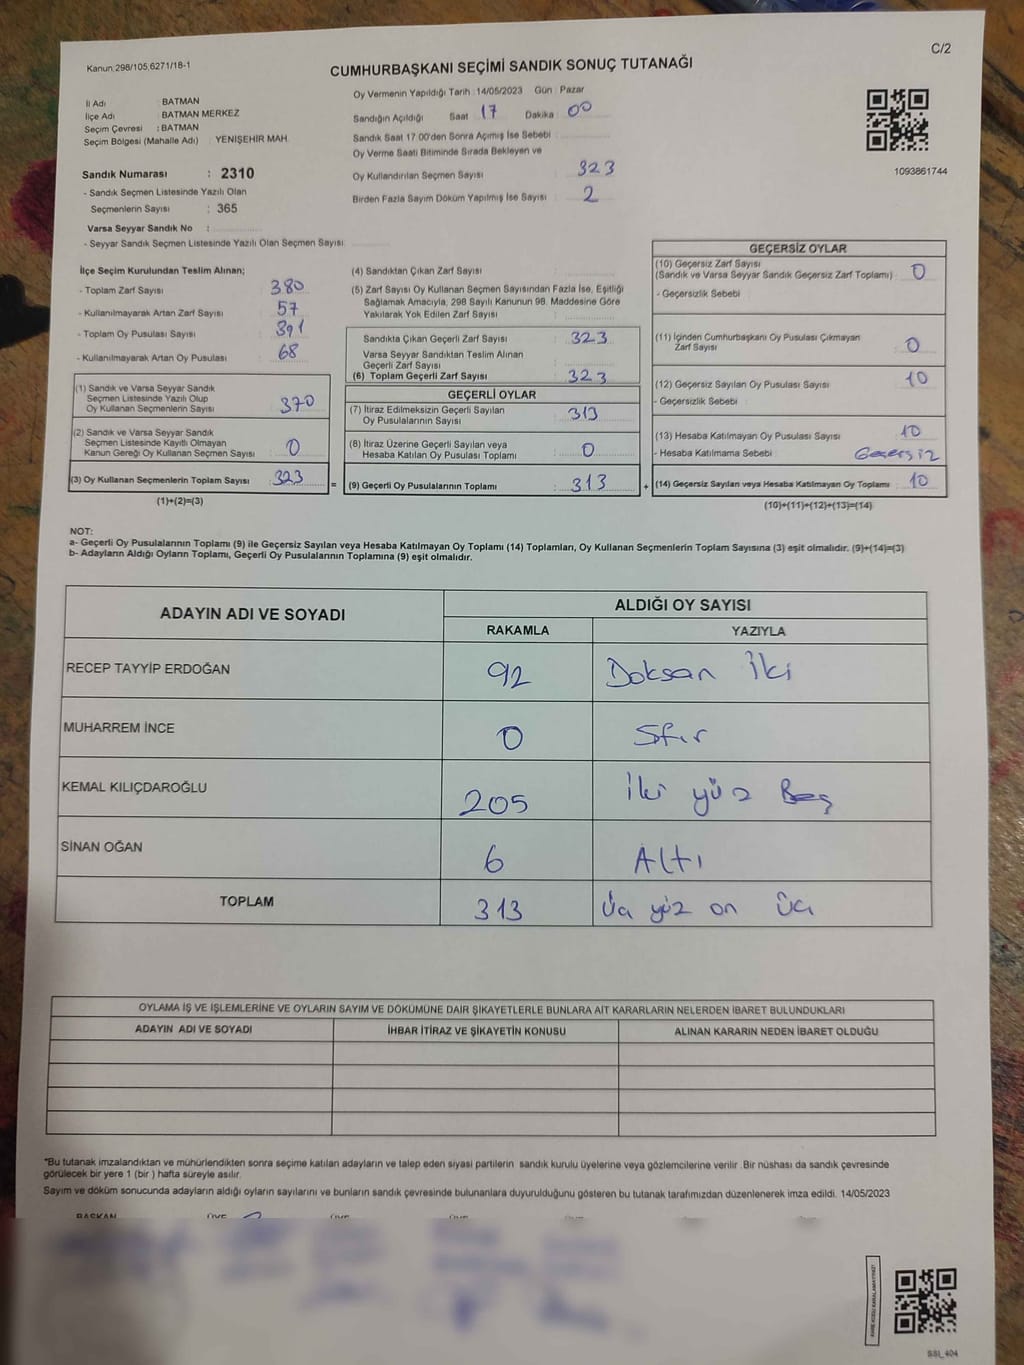 C/2
Kanun,298/105,6271/18-1
CUMHURBAŞKANI SEÇİMİ SANDIK SONUÇ TUTANAĞI
İl Adı BATMAN
İlçe Adı : BATMAN MERKEZ
Seçim Çevresi : BATMAN
Seçim Bölgesi (Mahalle Adı) : YENIŞEHİR MAH.
Sandık Numarası : 2310
- Sandık Seçmen Listesinde Yazılı Olan
Seçmenlerin Sayısı : 365
Varsa Seyyar Sandık No :
- Seyyar Sandık Seçmen Listesinde Yazılı Olan Seçmen Sayısı:
Oy Vermenin Yapıldığı Tarih : 14/05/2023 Gün : Pazar
Sandığın Açıldığı Saat : 17 Dakika : 00
Sandık Saat 17:00'den Sonra Açımış İse Sebebi :
Oy Verme Saati Bitiminde Sırada Bekleyen ve
Oy Kullandırılan Seçmen Sayısı : 323
Birden Fazla Sayım Döküm Yapılmış İse Sayısı : 2
1093861744
İlçe Seçim Kurulundan Teslim Alınan;
- Toplam Zarf Sayısı : 380
- Kullanılmayarak Artan Zarf Sayısı : 57
- Toplam Oy Pusulası Sayısı : 391
- Kullanılmayarak Artan Oy Pusulası : 68
(1) Sandık ve Varsa Seyyar Sandık
Seçmen Listesinde Yazılı Olup
Oy Kullanan Seçmenlerin Sayısı : 370
(2) Sandık ve Varsa Seyyar Sandık
Seçmen Listesinde Kayıtlı Olmayan
Kanun Gereği Oy Kullanan Seçmen Sayısı : 0
(3) Oy Kullanan Seçmenlerin Toplam Sayısı : 323
(1)+(2)=(3)
(4) Sandıktan Çıkan Zarf Sayısı :
(5) Zarf Sayısı Oy Kullanan Seçmen Sayısından Fazla İse, Eşitliği
Sağlamak Amacıyla, 298 Sayılı Kanunun 98. Maddesine Göre
Yakılarak Yok Edilen Zarf Sayısı :
Sandıkta Çıkan Geçerli Zarf Sayısı : 323
Varsa Seyyar Sandıktan Teslim Alınan
Geçerli Zarf Sayısı :
(6) Toplam Geçerli Zarf Sayısı : 323
GEÇERLİ OYLAR
(7) İtiraz Edilmeksizin Geçerli Sayılan
Oy Pusulalarının Sayısı : 313
(8) İtiraz Üzerine Geçerli Sayılan veya
Hesaba Katılan Oy Pusulası Toplamı : 0
= (9) Geçerli Oy Pusulalarının Toplamı : 313
GEÇERSİZ OYLAR
(10) Geçersiz Zarf Sayısı
(Sandık ve Varsa Seyyar Sandık Geçersiz Zarf Toplamı) : 0
- Geçersizlik Sebebi :
(11) İçinden Cumhurbaşkanı Oy Pusulası Çıkmayan
Zarf Sayısı : 0
(12) Geçersiz Sayılan Oy Pusulası Sayısı : 10
- Geçersizlik Sebebi :
(13) Hesaba Katılmayan Oy Pusulası Sayısı : 10
- Hesaba Katılmama Sebebi : Geçersiz
+ (14) Geçersiz Sayılan veya Hesaba Katılmayan Oy Toplamı : 10
(10)+(11)+(12)+(13)=(14)
NOT:
a- Geçerli Oy Pusulalarının Toplamı (9) ile Geçersiz Sayılan veya Hesaba Katılmayan Oy Toplamı (14) Toplamları, Oy Kullanan Seçmenlerin Toplam Sayısına (3) eşit olmalıdır. (9)+(14)=(3)
b- Adayların Aldığı Oyların Toplamı, Geçerli Oy Pusulalarının Toplamına (9) eşit olmalıdır.
ADAYIN ADI VE SOYADI ALDIĞI OY SAYISI
RAKAMLA YAZIYLA
RECEP TAYYİP ERDOĞAN 92 Doksan İki
MUHARREM İNCE 0 Sıfır
KEMAL KILIÇDAROĞLU 205 İki yüz Beş
SİNAN OĞAN 6 Altı
TOPLAM 313 Üç yüz on Üç
OYLAMA İŞ VE İŞLEMLERİNE VE OYLARIN SAYIM VE DÖKÜMÜNE DAİR ŞİKAYETLERLE BUNLARA AİT KARARLARIN NELERDEN İBARET BULUNDUKLARI
ADAYIN ADI VE SOYADI İHBAR İTİRAZ VE ŞİKAYETİN KONUSU ALINAN KARARIN NEDEN İBARET OLDUĞU
*Bu tutanak imzalandıktan ve mühürlendikten sonra seçime katılan adayların ve talep eden siyasi partilerin sandık kurulu üyelerine veya gözlemcilerine verilir .Bir nüshası da sandık çevresinde
görülecek bir yere 1 (bir ) hafta süreyle asılır.
Sayım ve döküm sonucunda adayların aldığı oyların sayılarını ve bunların sandık çevresinde bulunanlara duyurulduğunu gösteren bu tutanak tarafımızdan düzenlenerek imza edildi. 14/05/2023
BAŞKAN ÜYE ÜYE ÜYE ÜYE
SSI_404